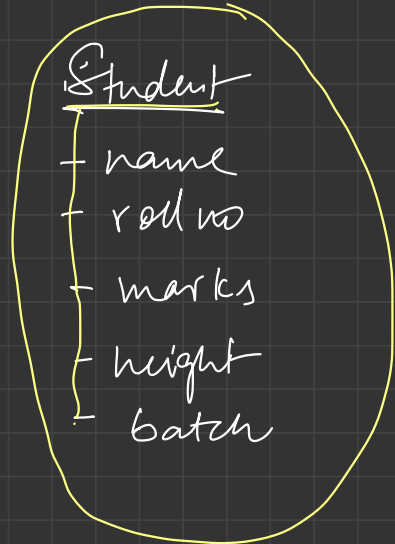 Student
name
roll no
marks
height
batch